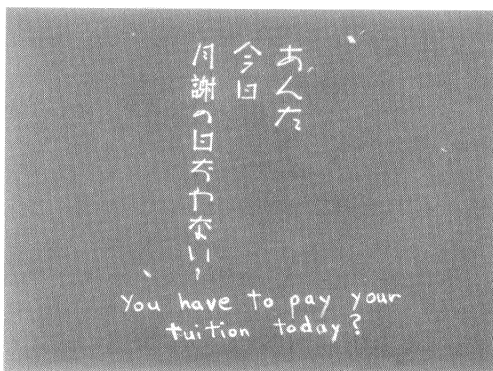 あんた
今日
月謝の日ぢやない?
You have to pay your
tuition today?